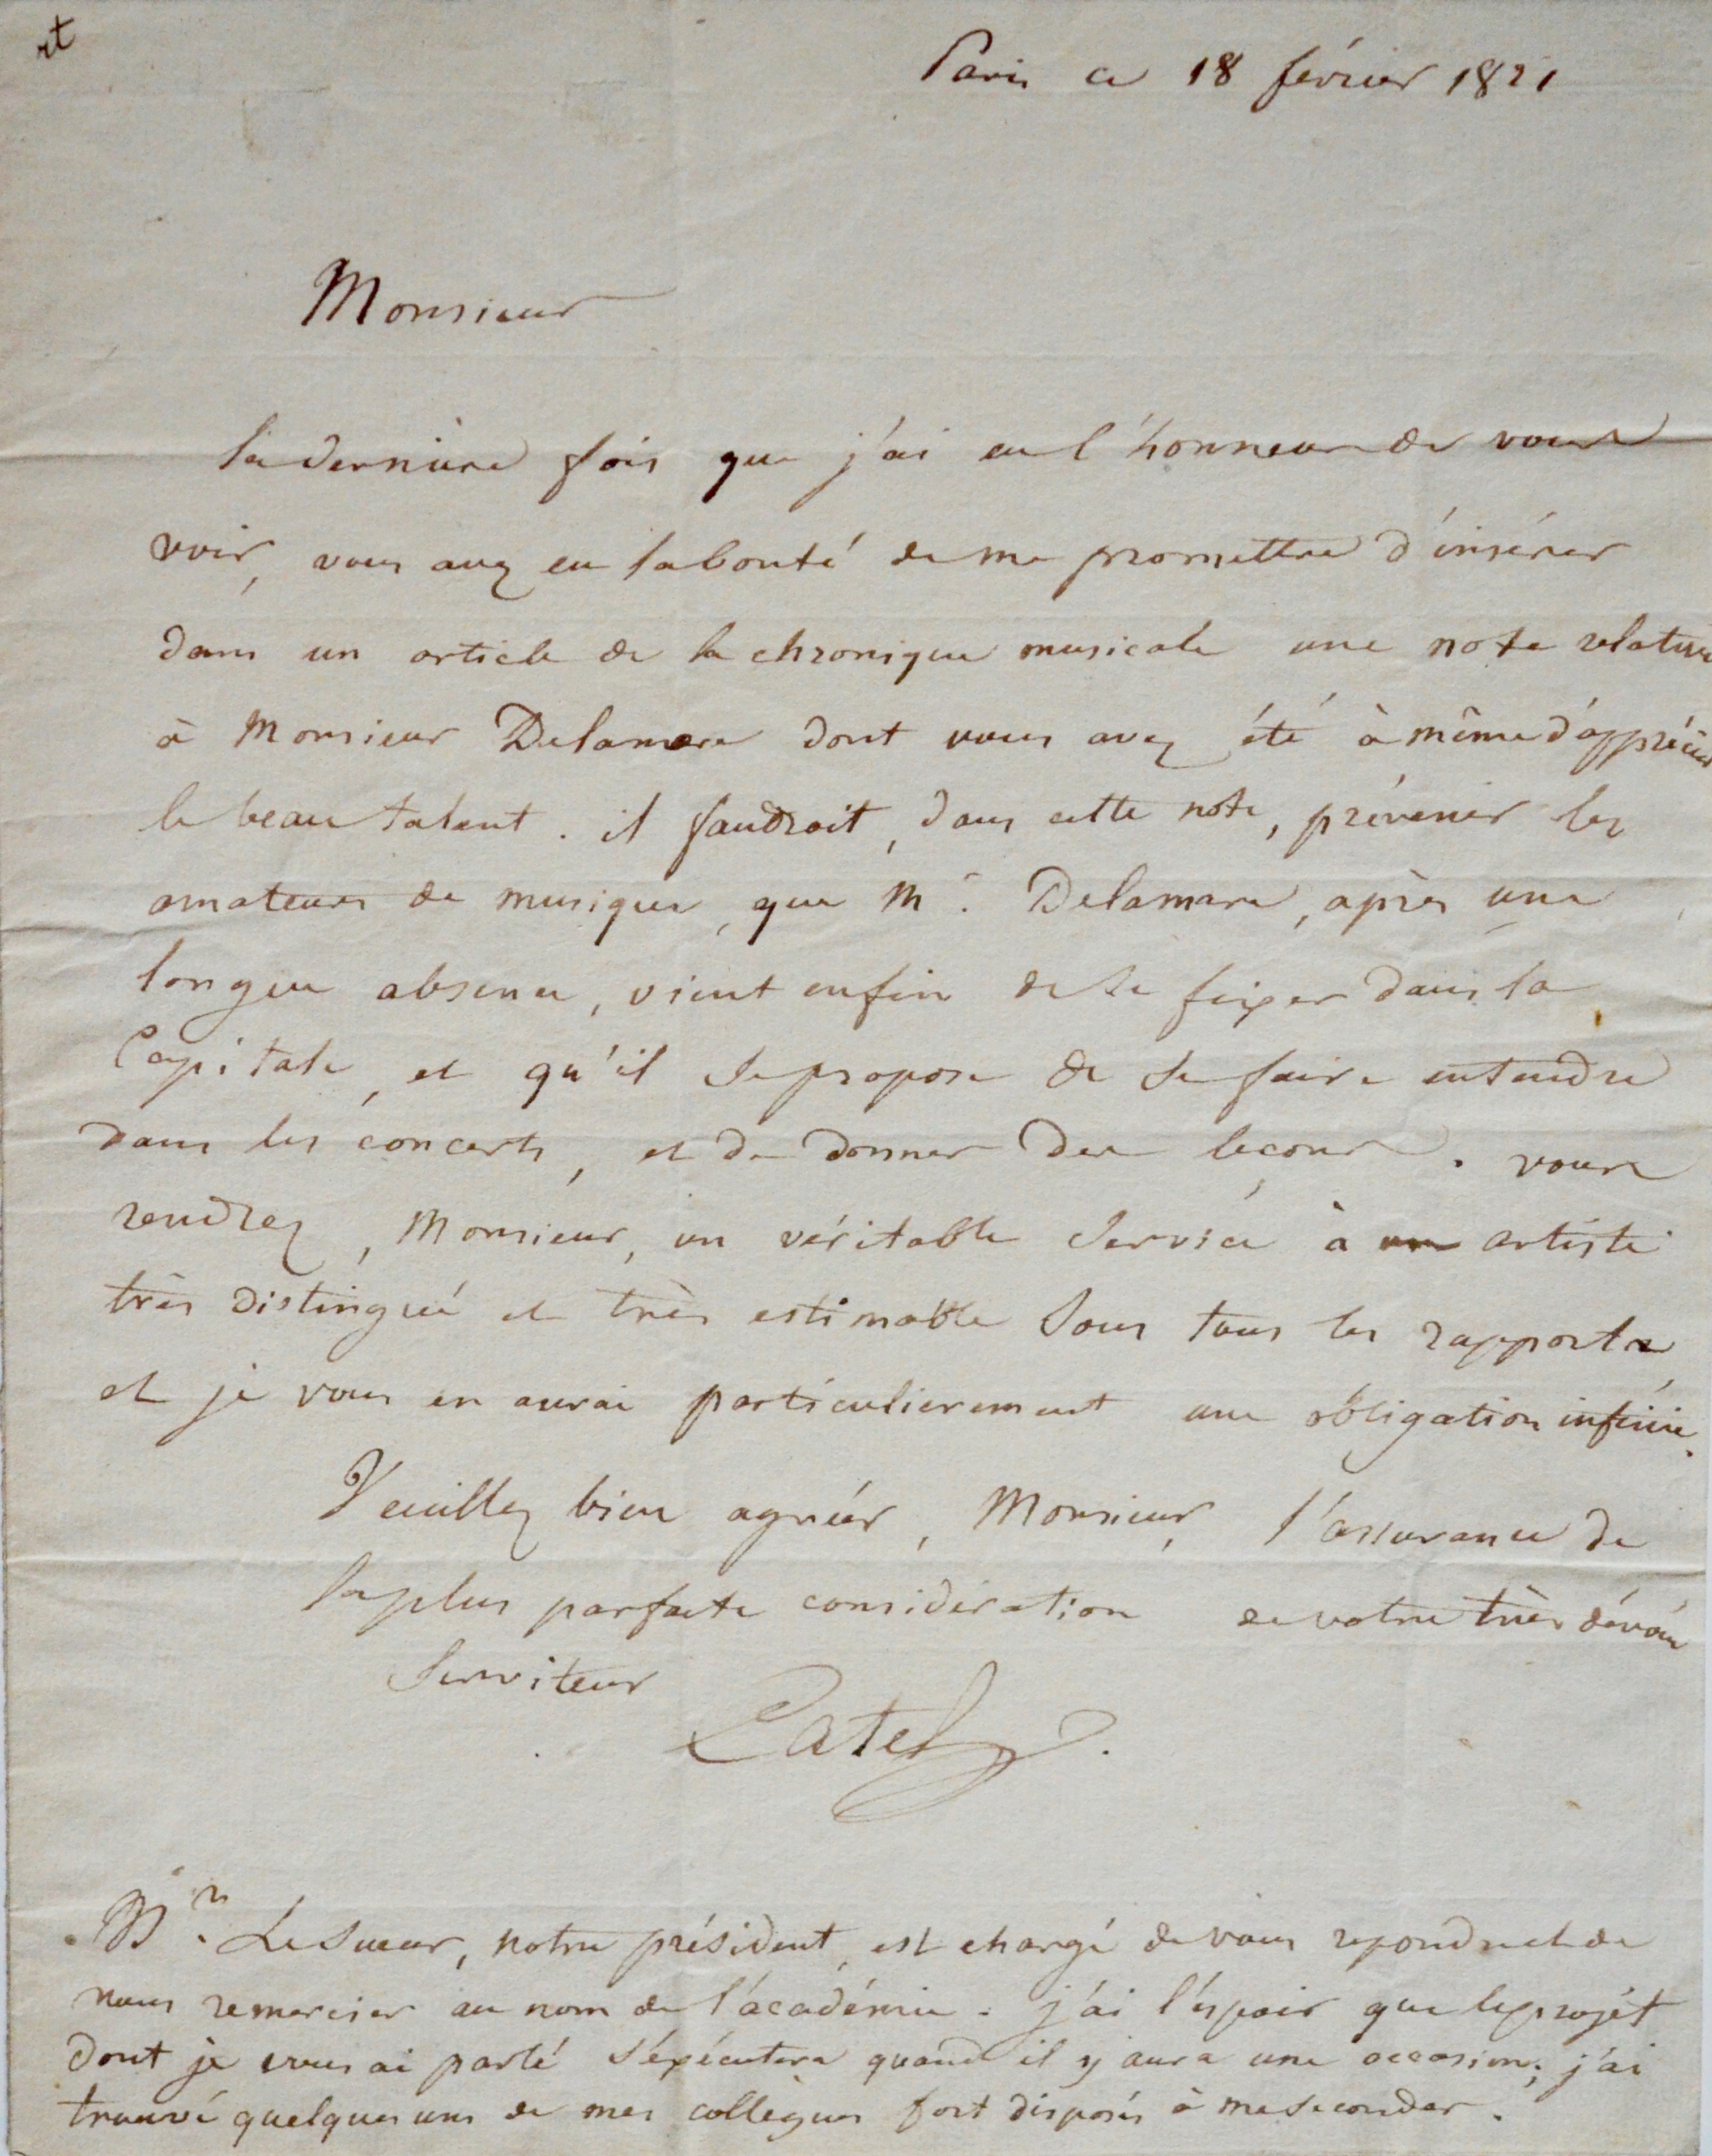 Paris ce 18 février 1821
Monsieur
la dernière fois que j'ai eu l'honneur de vous
voir, vous avez eu la bonté de me promettre d'insérer
dans un article de la chronique musicale une note relative
à Monsieur Delamare dont vous avez été à même d'apprécier
le beau talent. il faudroit, dans cette note, prévenir les
amateurs de musique, que Mr. Delamare, après une
longue absence, vient enfin de se fixer dans la
Capitale, et qu'il se propose de se faire entendre
dans les concerts, et de donner des leçons. vous
rendrez, Monsieur, un véritable service à un artiste
très distingué et très estimable sous tous les rapports
et je vous en aurai particulierement une obligation infinie.
Veuillez bien agréér, Monsieur, l'assurance de
la plus parfaite considération de votre très dévoué
serviteur
Catel
Mr. LeSueur, notre président, est chargé de vous repondre et de
vous remercier au nom de l'académie. j'ai l'espoir que le projét
dont je vous ai parlé s'éxécutera quand il y aura une occasion; j'ai
trouvé quelques uns de mes collègues fort disposés à me seconder.